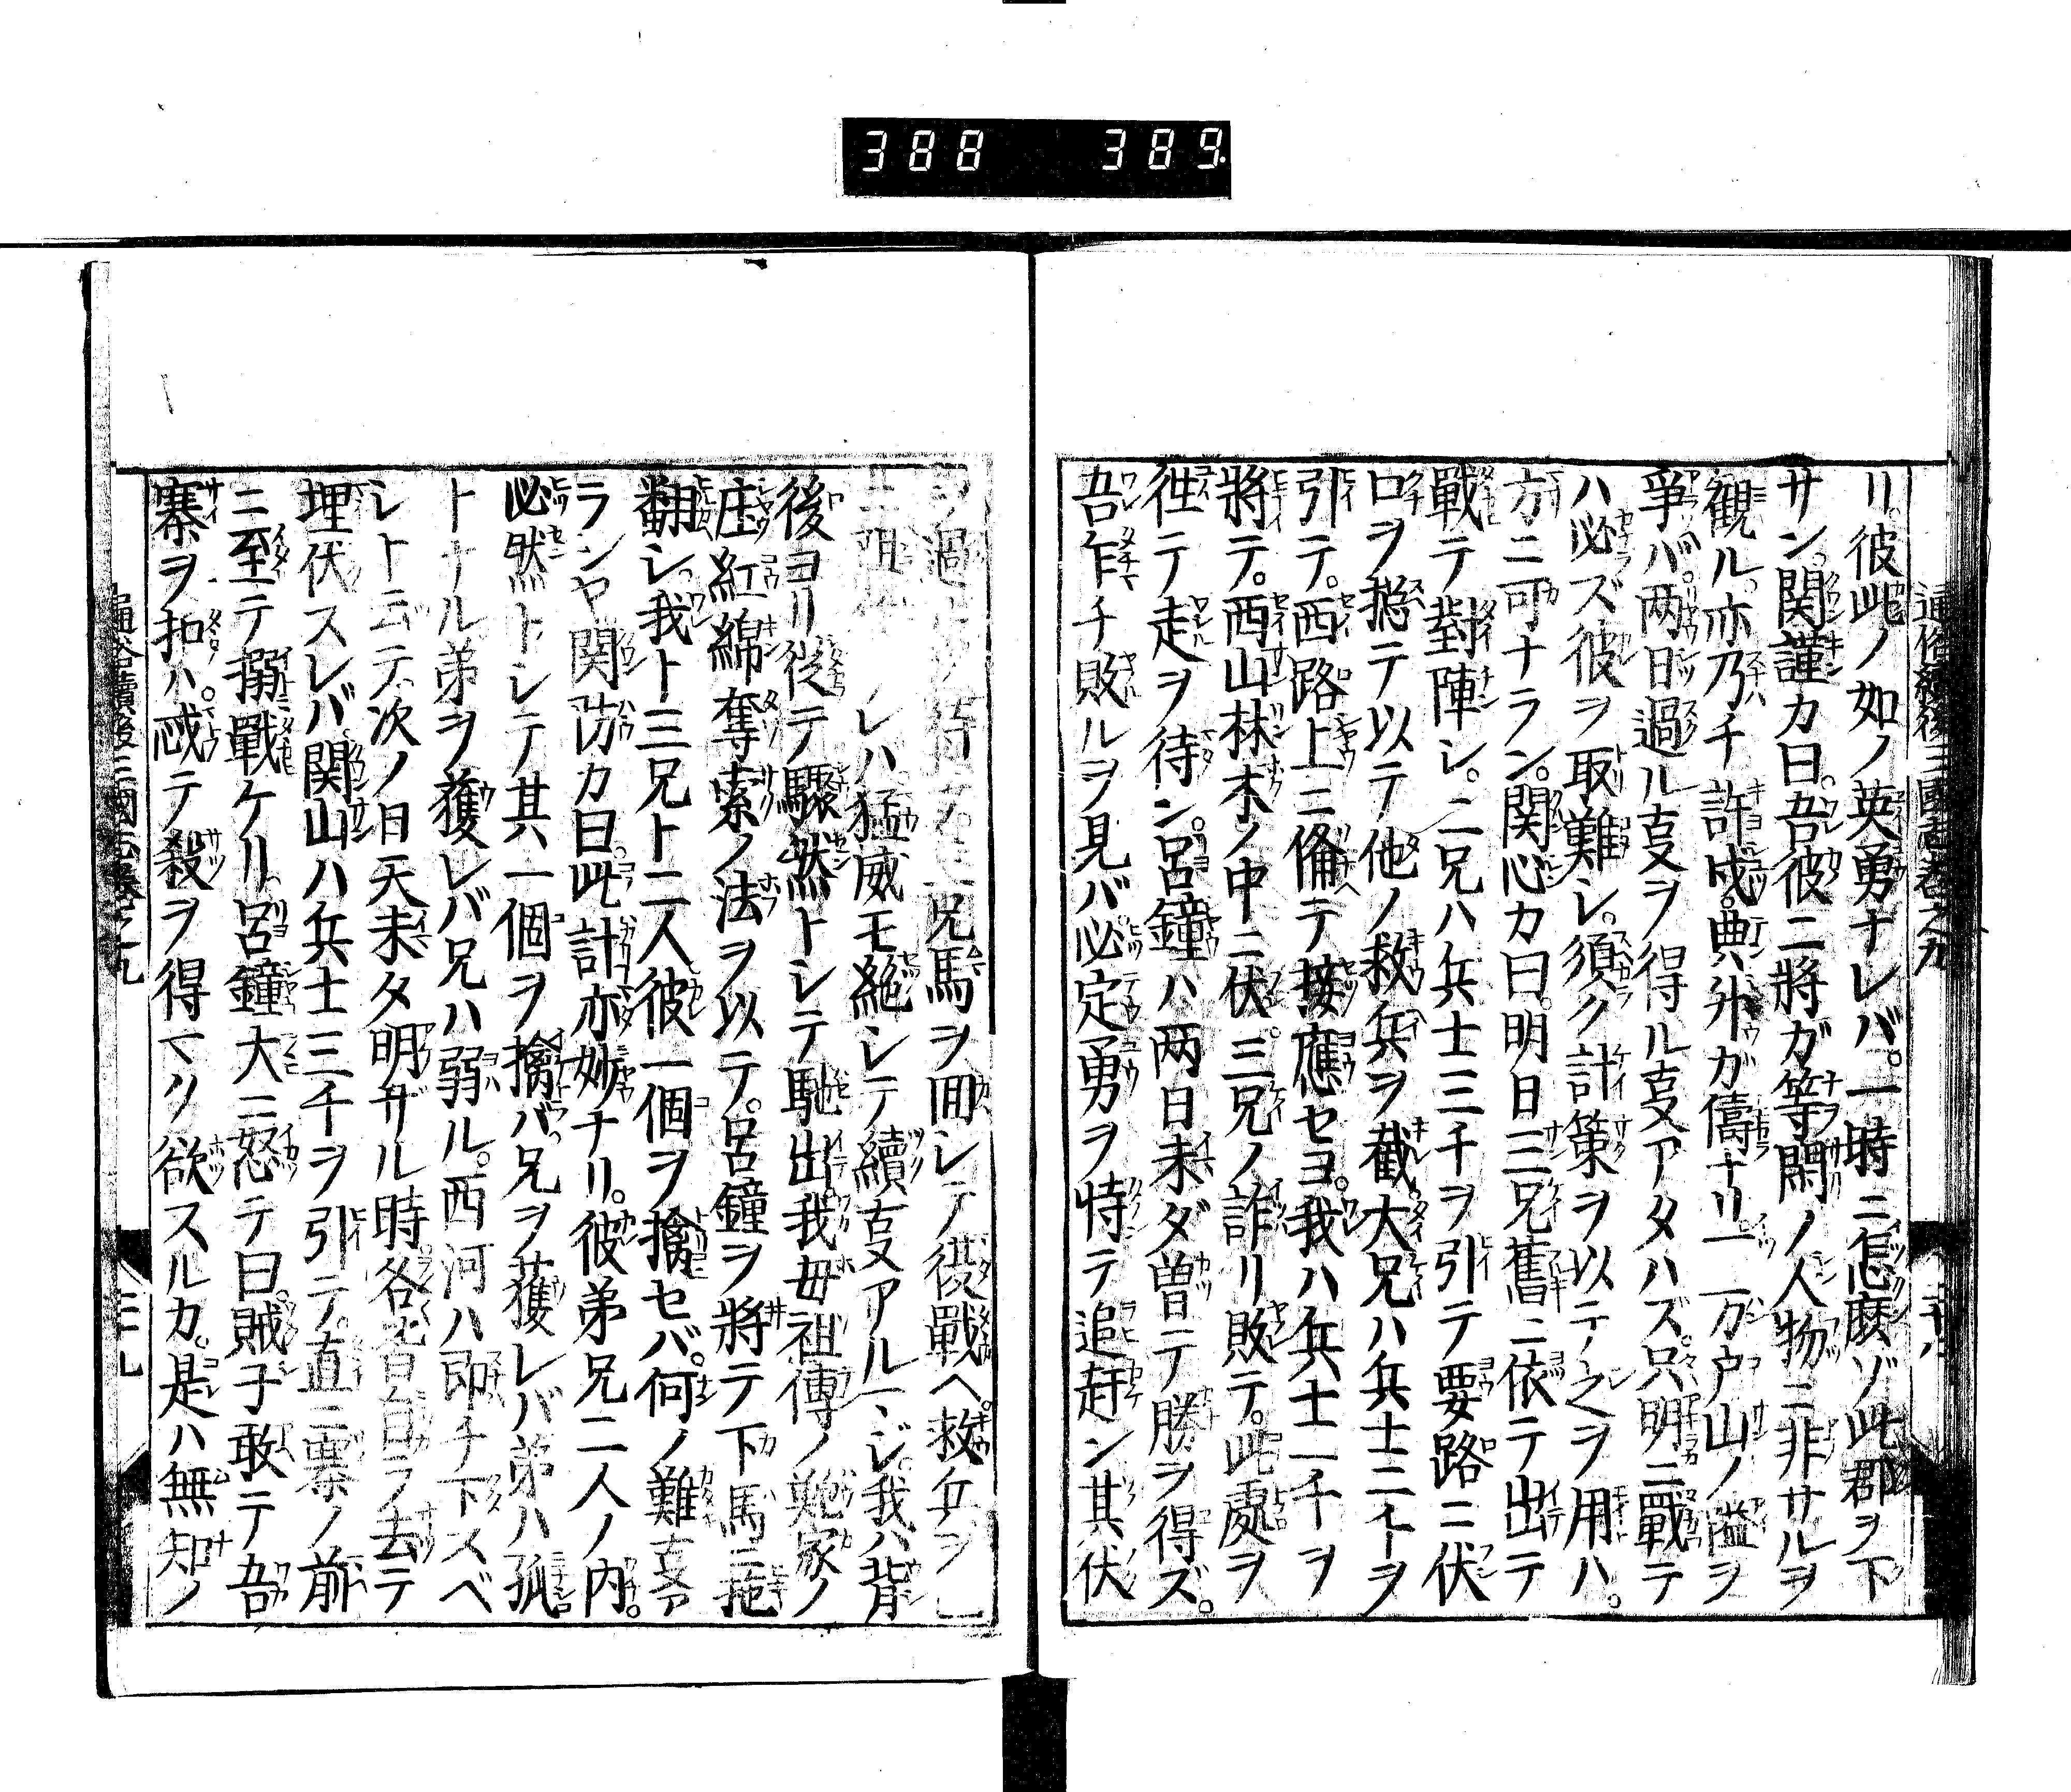 388 389
通俗續後三國志卷之九
リ。彼此ノ如ノ英勇ナレバ。一時ニ怎麽ゾ此郡ヲ下
サン。関謹カ曰。吾彼二將ガ等閑ノ人物ニ非サルヲ
観ル。亦乃チ許戍。典升ガ儔ナリ。一一万户山ノ隘ヲ
爭バ。两日過ル叓ヲ得ル叓アタハズ。只明ニ戰テ
ハ必ズ彼ヲ取難シ。須ク計策ヲ以テ之ヲ用ハ。
方ニ可ナラン。関心カ曰。明日三兄舊ニ依テ出テ
戰テ對陣シ。二兄ハ兵士三千ヲ引テ要路ニ伏
ロヲ揔テ以テ他ノ救兵ヲ截。大兄ハ兵士二千ヲ
引テ。西路上ニ俻テ接應セヨ。我ハ兵士一千ヲ
將テ。西山林木ノ中ニ伏。三兄ノ詐リ敗テ。此處ヲ
徃テ走ヲ待ン。呂鐘ハ两日未ダ曽テ勝ヲ得ズ。
吾乍チ敗ルヲ見バ必定勇ヲ恃テ追赶ン其伏
ヲ過 待 兄馬ヲ囬シテ復戰ヘ。救兵ヲ
レハ猛威モ絶シテ續叓アルマジ。我ハ背
後ヨリ従テ驟然トシテ馳出。我毋祖傳ノ鮑家ノ
庄紅綿奪索ノ法ヲ以テ。呂鐘ヲ將テ下馬ニ拖
翻シ。我ト三兄ト二人彼一個ヲ擒セバ。何ノ難叓ア
ランヤ関防カ曰。此計亦妙ナリ。彼弟兄二人ノ内。
必然トシテ其一個ヲ擒バ。兄ヲ獲レバ弟ハ孤
トナル弟ヲ獲レバ兄ハ弱ル。西河ハ即チ下スベ
シト云テ次ノ日天未タ明ザル時各
埋伏スレバ関山ハ兵士三千ヲ引テ。直ニ寨ノ前
ニ至テ搦戰ケリ。呂鐘大ニ怒テ曰。賊子敢テ吾
寨ヲ扣ハ。忒テ殺ヲ得マク欲スルカ。是ハ無知ノ
通俗續後三國志卷之九
三十九